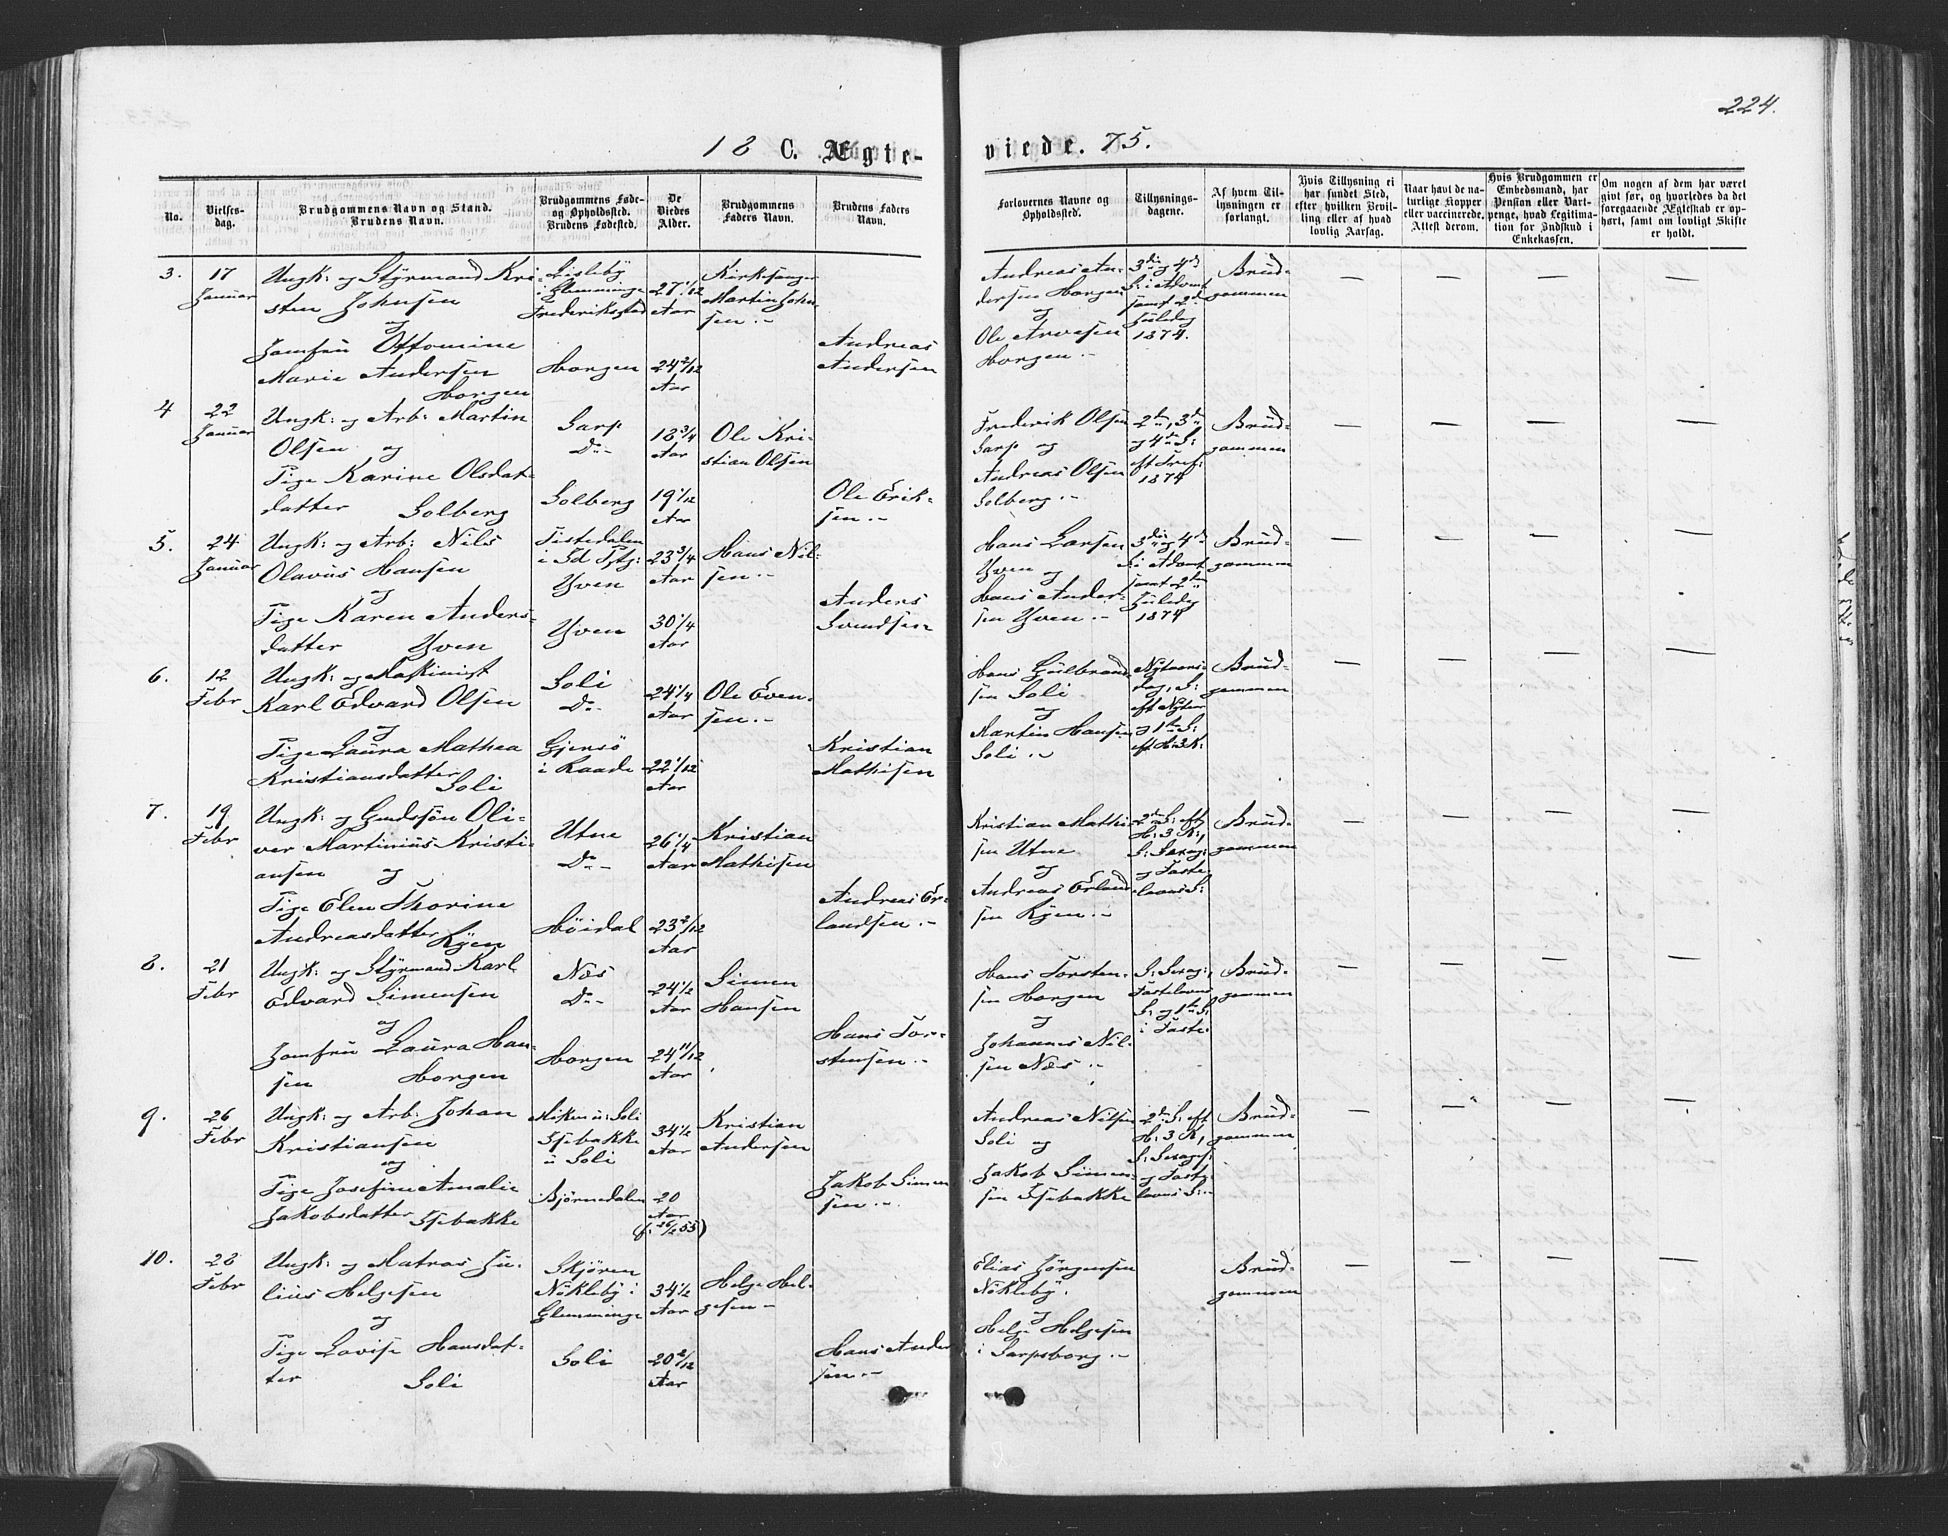 224.
18 C. Ægte-
viede. 75.
No.
Vielses-
dag.
Brudgommens Navn og Stand.
Brudens Navn.
Brudgommens Føde-
og Opholdssted.
Brudens Fødested.
De
Viedes
Alder.
Brudgommens
Faders Navn.
Brudens Faders
Navn.
Forlovernes Navne og
Opholdssted.
Tillysnings-
dagene.
Af hvem Til-
lysningen er
forlangt.
Hvis Tillysning ei
har fundet Sted,
efter hvilken Bevil-
ling eller af hvad
lovlig Aarsag.
Naar havt de na-
turlige Kopper
eller vaccinerede.
Attest derom.
Hvis Brudgommen er
Embedsmand, har
Pension eller Vart-
penge, hvad Legitima-
tion for Indskud i
Enkekassen.
Om nogen af dem har været
gift før, og hvorledes da det
foregaaende Ægteskab er op-
hørt, samt om lovligt Skifte
er holdt.
3.
17
Januar
Ungk: og Styrmand Kri-
sten Johnsen
og
Jomfru Ottomine
Marie Andersen
Borgen
Lisleby
i Glemminge
Frederiksstad
Borgen
27 1/12
Aar
24 2/12
Aar
Kirkesanger
Martin John-
sen.-
Andreas
Andersen
Andreas An-
dersen Borgen
og
Ole Arvesen
Borgen.-
3die og 4de
S: i Advent
samt 2d
Juledag
1874.
Brud-
gommen
— — — —
4
22
Januar
Ungk: og Arb: Martin
Olsen og
Pige Karine Olsdat-
datter Solberg
Sarp
Do-
Solberg
18 3/4
Aar
19 1/12
Aar
Ole Kri-
stian Olsen
Ole Erik-
sen.-
Frederik Olsen
Sarp og
Andreas Olsen
Solberg.-
2den, 3die
og 4de S:
eft Tref:
1874
Brud-
gommen
— — — —
5.
24
Januar
Ungk: og Arb: Nils
Olavus Hansen
og
Pige Karen Anders-
datter Yven
Tistedalen
i Id Pgj:
Yven
Yven
23 3/4
Aar
30 1/4
Aar
Hans Nil-
sen.-
Anders
Svendsen
Hans Larsen
Yven og
Hans Ander-
sen Yven.-
3die og 4de
S: i Advent
samt 2den
Juledag
1874
Brud-
gommen
— — — —
6.
12
Febr
Ungk: og Maskinist
Karl Edvard Olsen
og
Pige Laura Mathea
Kristiansdatter
Soli
Soli
Do-
Gjersö
i Raade
24 1/4
Aar
22 1/12
Aar
Ole Even-
sen.-
Kristian
Mathisen
Hans Gulbrand-
sen Soli
og
Martin Hansen
Soli.-
Nytaars-
dag, S:
eft Nytaar
og 1ste S:
eft H:3K:
Brud-
gommen
— — — —
7.
19
Febr
Ungk: og Gmdssøn Oli-
ver Martinius Kristi-
ansen og
Pige Elen Thorine
Andreasdatter Ryen
Utne
Do-
Höidal
26 1/4
Aar
23 2/12
Aar
Kristian
Mathisen
Andreas Er-
landsen.-
Kristian Mathi-
sen Utne
og
Andreas Erland-
sen Ryen.-
2den S: eft
H: 3 K:,
S: Sexag:
og Faste-
lavns S:
Brud-
gommen
— — — —
8.
21
Febr
Ungk: og Styrmand Karl
Edvard Simensen
og
Jomfru Laura Han-
sen Borgen
Næs
Do-
Borgen
24 1/2
Aar
24 11/12
Aar
Simen
Hansen
Hans Tor-
stensen.-
Hans Torsten-
sen Borgen
og
Johannes Nil-
sen Næs.-
S: Sexag:,
Fastelavns
S: og 1ste S:
i Faste.
Brud-
gommen
— — — —
9.
26
Febr
Ungk: og Arb: Johan
Kristiansen
og
Pige Josefine Amalie
Jakobsdatter Isebakke
Moken u: Soli
Isebakke
u Soli
Björnedalen
34 1/2
Aar
20
Aar
(f: 26/2 55)
Kristian
Andersen
Jakob Simen
sen.-
Andreas Nilsen
Soli og
Jakob Simen-
sen Isebakke
2den S: eft
H: 3 K,
S: Sexages:
og Fast-
lavns S:-
Brud-
gommen
— — — —
10.
28
Febr
Ungk: og Matros Ju-
lius Helgesen
og
Pige Lovise Hansdat-
ter Soli
Skjören
Nökleby i
Glemminge
Soli
34 1/2
Aar
20 2/12
Aar
Helge Hel-
gesen-
Hans Ander
sen.-
Elias Jörgensen
Nökleby.
og
Helge Helgesen
i Sarpsborg.-
Brud-
gommen
— — — —